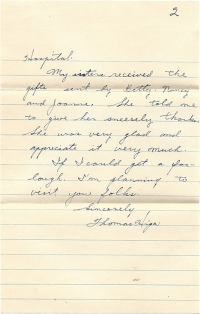 2
Hospital.
My sisters received the
gifts sent by Betty, Nancy
and Joanne. She told me
to give her sincerely thanks.
She was very glad and
appreciate it very much.
If I could get a fur-
lough. I'm planning to
visit your folks.
Sincerely
Thomas Higa